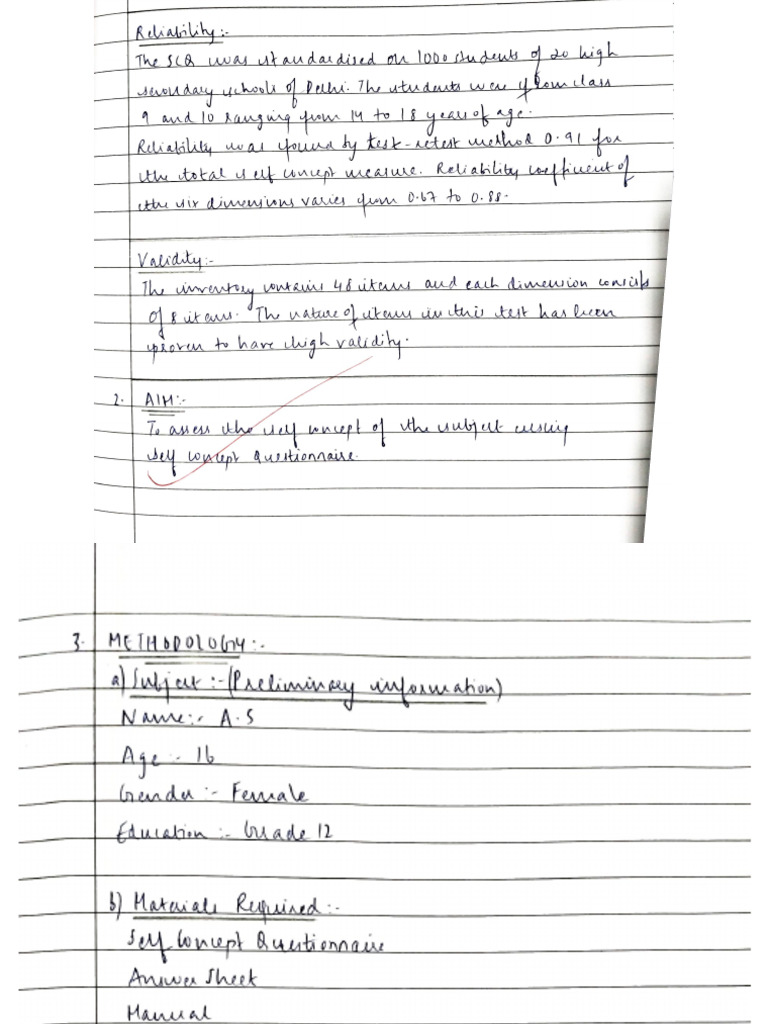 Reliability:-
The SCQ was standardised on 1000 students of 20 high
secondary schools of Delhi. The students were from class
9 and 10 ranging from 14 to 18 years of age.
Reliability was found by test-retest method 0.91 for
the total self concept measure. Reliability coefficient of
the six dimensions varies from 0.67 to 0.88.
Validity:-
The inventory contains 48 items and each dimension consists
of 8 items. The nature of items in this test has been
proven to have high validity.
2. AIM:-
To assess the self concept of the subject using
self concept Questionnaire.
3. METHODOLOGY:-
a) Subject:-(Preliminary information)
Name:- A.S
Age:- 16
Gender:- Female
Education:- Grade 12
b) Materials Required:-
Self Concept Questionnaire
Answer Sheet
Manual